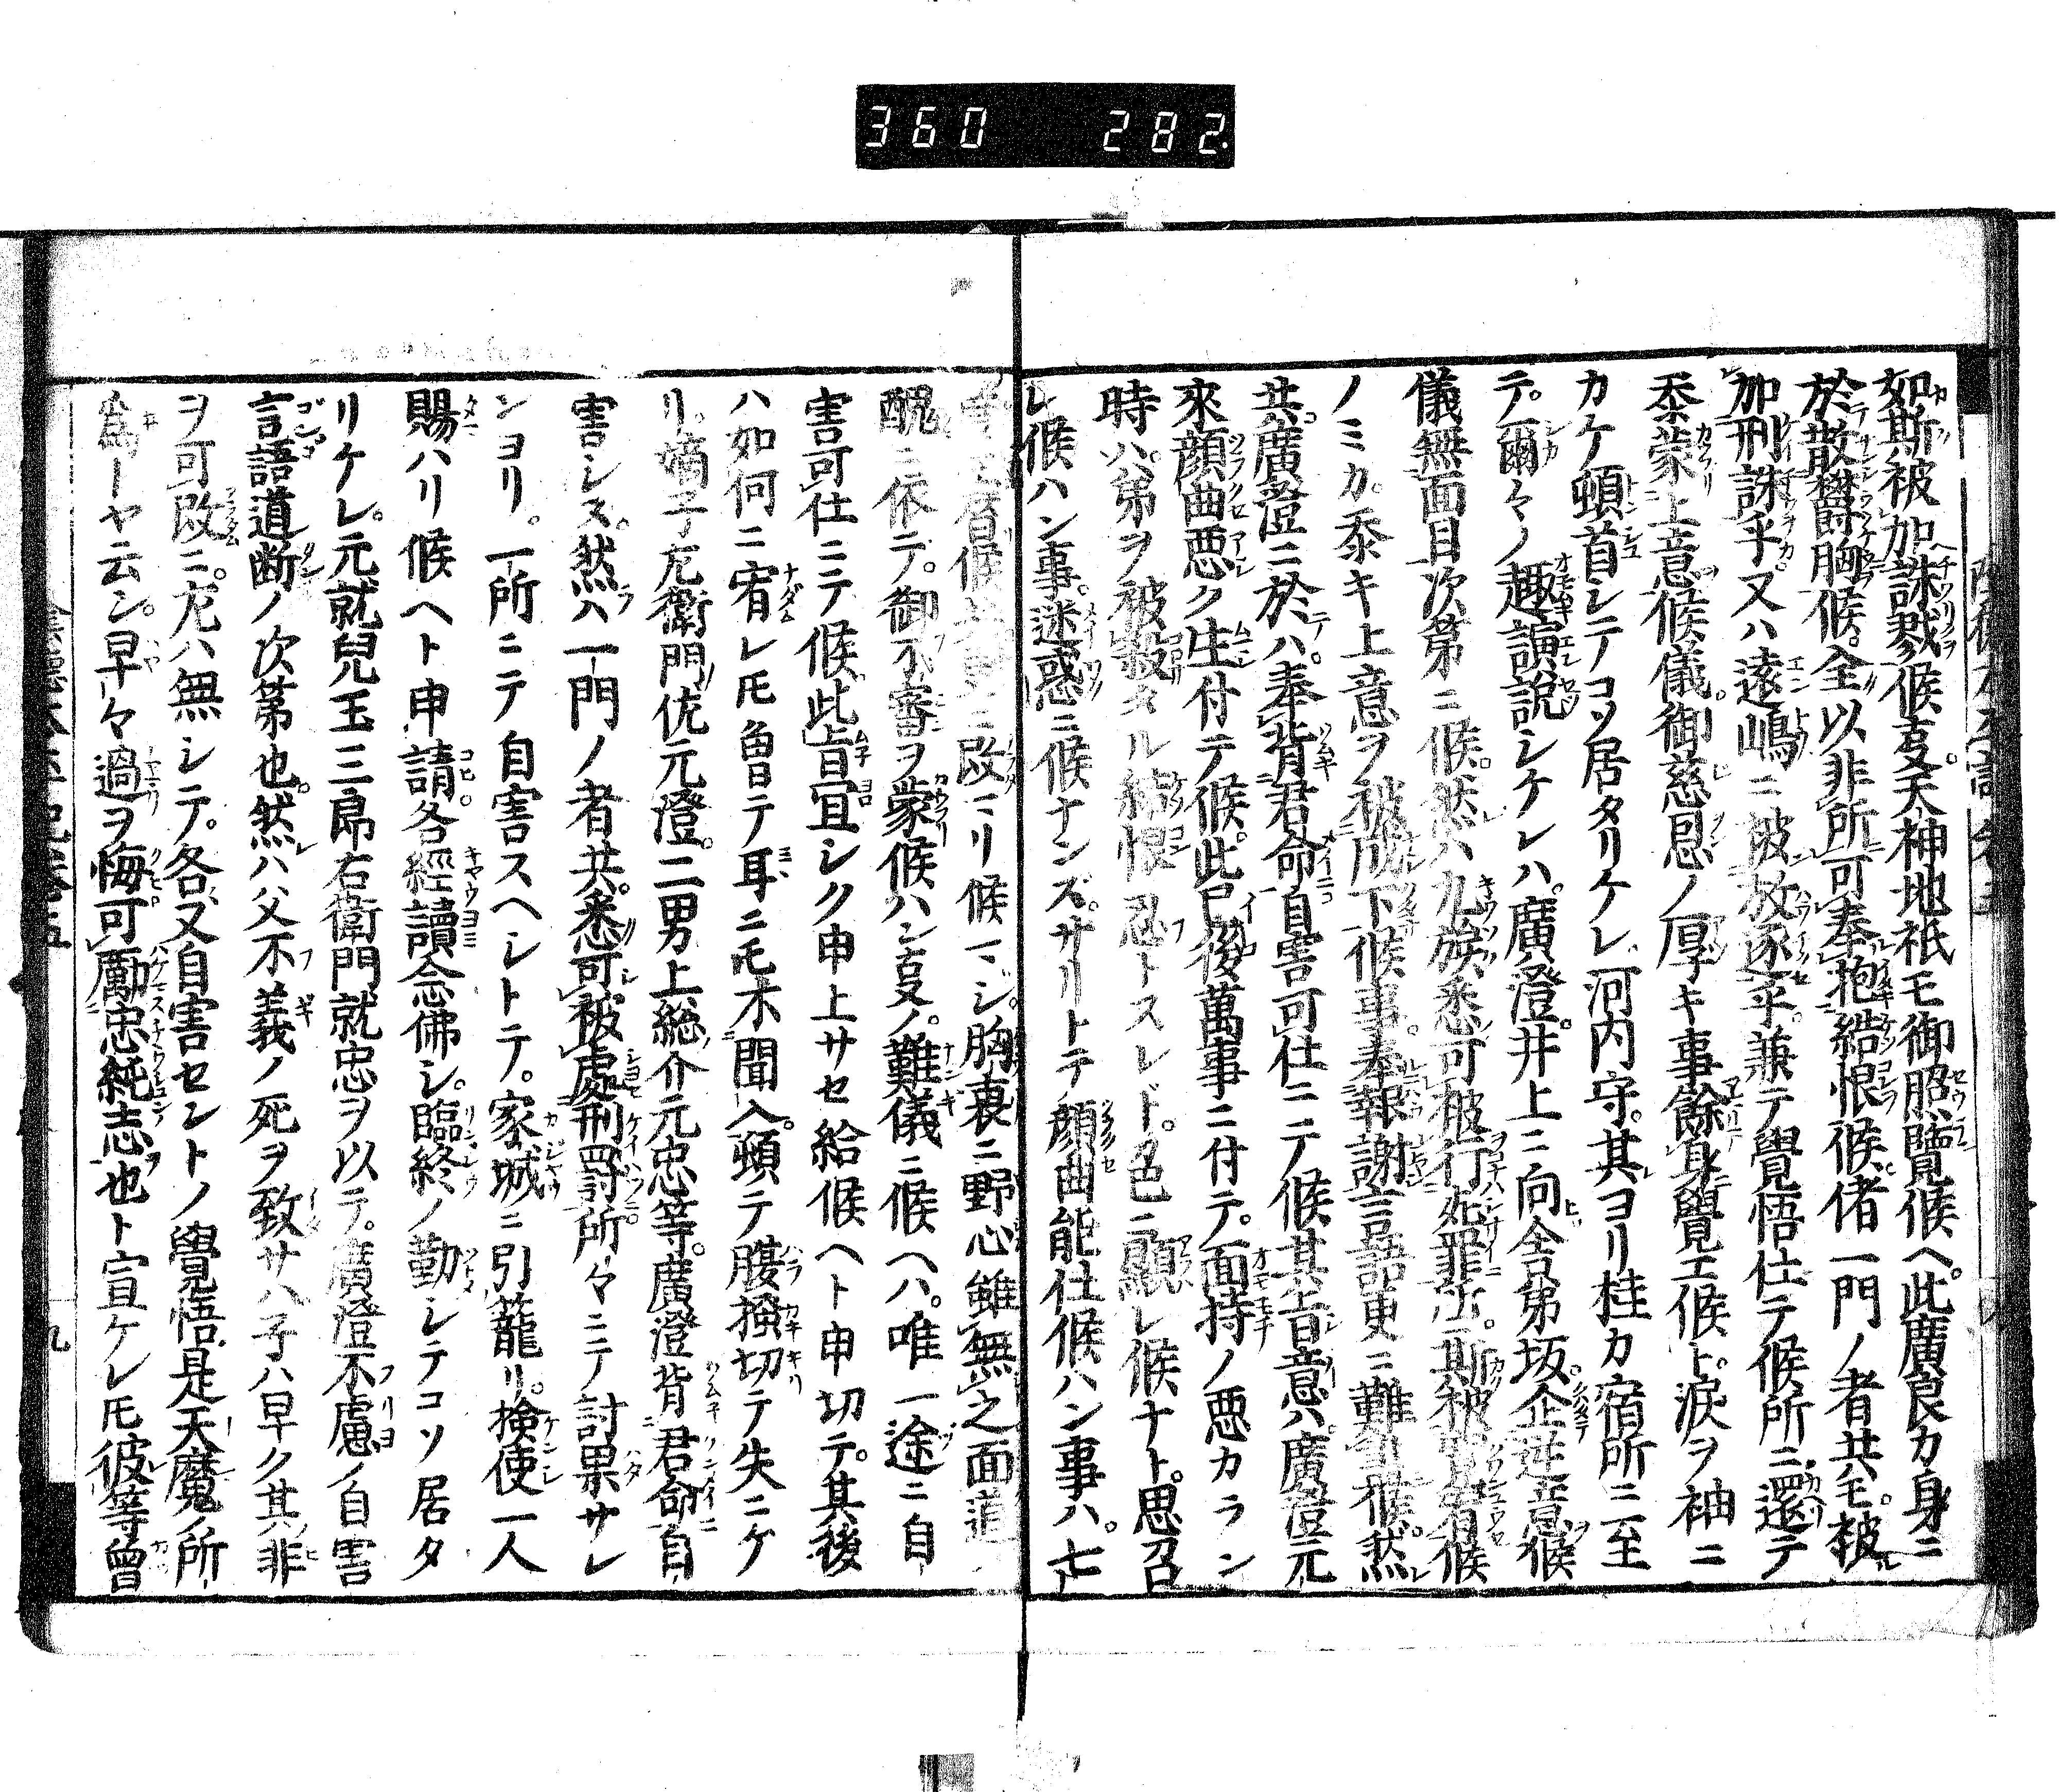 360 282
如斯被加誅戮候亥天神地祇モ御照覽候ヘ此廣良カ身ニ
於テ散欝胸候全以非所可奉抱結恨候偖一門ノ者共モ被
加刑誅乎又ハ遠嶋ニ被放逐乎兼テ覺悟仕テ候所ニ還テ
忝蒙上意候儀御慈恩ノ厚キ事餘身覺エ候ト涙ヲ袖ニ
カケ頓首シテコソ居タリケレ河内守其ヨリ桂カ宿所ニ至
テ爾々ノ趣演説シケレハ廣澄井上ニ向舎弟坂企逆意候
儀無面目次第ニ候然ハ九族悉可被行死罪法斯被宥候
ノミカ忝キ上意ヲ被成下候事奉報謝言語更ニ難申候然レ
共廣澄ニ於ハ奉背君命自害可仕ニテ候其上旨意ハ廣澄元
來顔曲悪ク生付テ候此已後萬事ニ付テ面持ノ悪カラン
時ハ弟ヲ被殺タル結恨忍トスレド色ニ顯レ候ナト思召
レ候ハン事迷惑ニ候ナンズサリトテ顔曲能仕候ハン事ハ亡
改ニリ候マジ胸裏ニ野心雖無之面道
醜ニ依テ御不審ヲ蒙候ハン亥ノ難儀ニ候ヘハ唯一途ニ自
害可仕ニテ候此旨宜シク申上サセ給候ヘト申切テ其後
ハ如何ニ宥レ𪜈曾テ耳ニモ不聞入頓テ腰掻切テ失ニケ
リ嫡子左衛門佐元澄二男上総介元忠等廣澄背君命自
害シヌ然ハ一門ノ者共悉可被處刑罸所々ニテ討果サレ
ンヨリ一所ニテ自害スヘシトテ家城ニ引籠リ検使一人
賜ハリ候ヘト申請各經讀念佛シ臨終ノ勤シテコソ居タ
リケレ元就兒玉三郎右衛門就忠ヲ以テ廣澄不慮ノ自害
言語道断ノ次第也然ハ父不義ノ死ヲ致サハ子ハ早ク其非
ヲ可改ニ左ハ無シテ各又自害セントノ覺悟是天魔ノ所
為ーヤ云ン早々過ヲ悔可勵忠純志也ト宣ケレ𪜈彼等曾
九